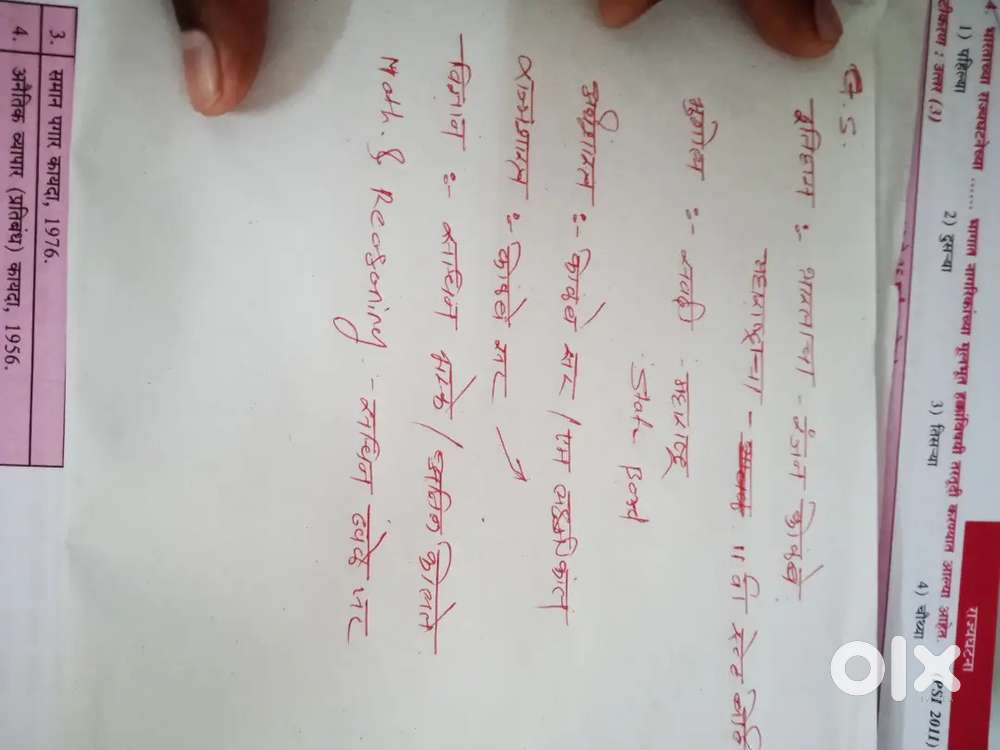 4. भारताच्या राज्यघटनेच्या ..... भागात नागरिकांच्या मूलभूत हक्कांविषयी तरतुदी करण्यात आल्या आहेत.
(PSI 2011)
1) पहिल्या 2) दुसऱ्या 3) तिसऱ्या 4) चौथ्या
टीकरण : उत्तर (3)
राज्यघटना
G.S.
इतिहास :- भारताचा - रंजन कोळंबे
महाराष्ट्राचा - 11 वी स्टेट बोर्ड
भुगोल :- सवदी - महाराष्ट्र
State Board
अर्थशास्त्र :- कोळंबे सर /
राज्यशास्त्र :- कोळंबे सर
विज्ञान :- सचिन भस्के / अनिल कोलते
Math. & Reasoning - सचिन ढवळे सर
3. समान पगार कायदा, 1976.
4. अनैतिक व्यापार (प्रतिबंध) कायदा, 1956.
olx